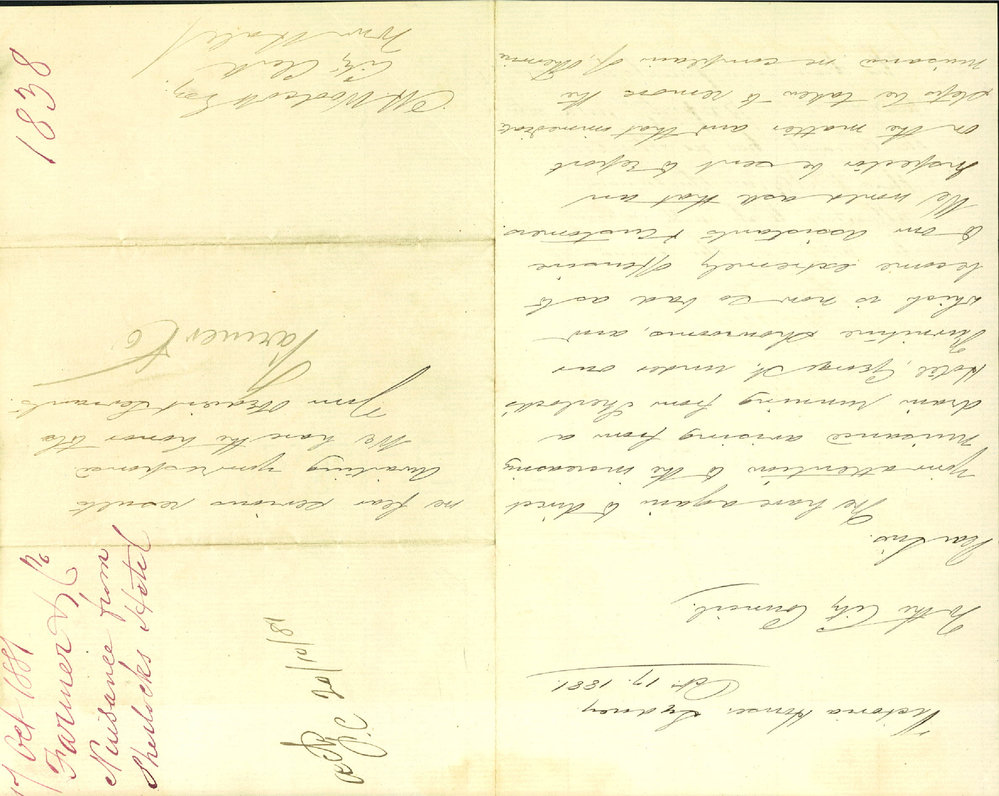 Victoria House, Sydney
Oct. 17. 1881.
To the City Council.
Dear Sirs.
We have again to direct
your attention to the increasing
nuisance arising from a
drain running from Sherlock's
Hotel, George St. under our
Furniture Showrooms, and
which is now so bad as to
become extremely offensive
to our assistants & Customers.
We would ask that an
Inspector be sent to report
on the matter and that immediate
steps be taken to remove the
nuisance we complain of, otherwise
we fear serious results
Awaiting your response
We have the honor to be
Your Obedient Servants
Farmer & Co
Woolcott Esq.
City Clerk
Town Hall
1838
17 Oct 1881
Farmer & Co
Nuisance from
Sherlocks Hotel
20/10/81